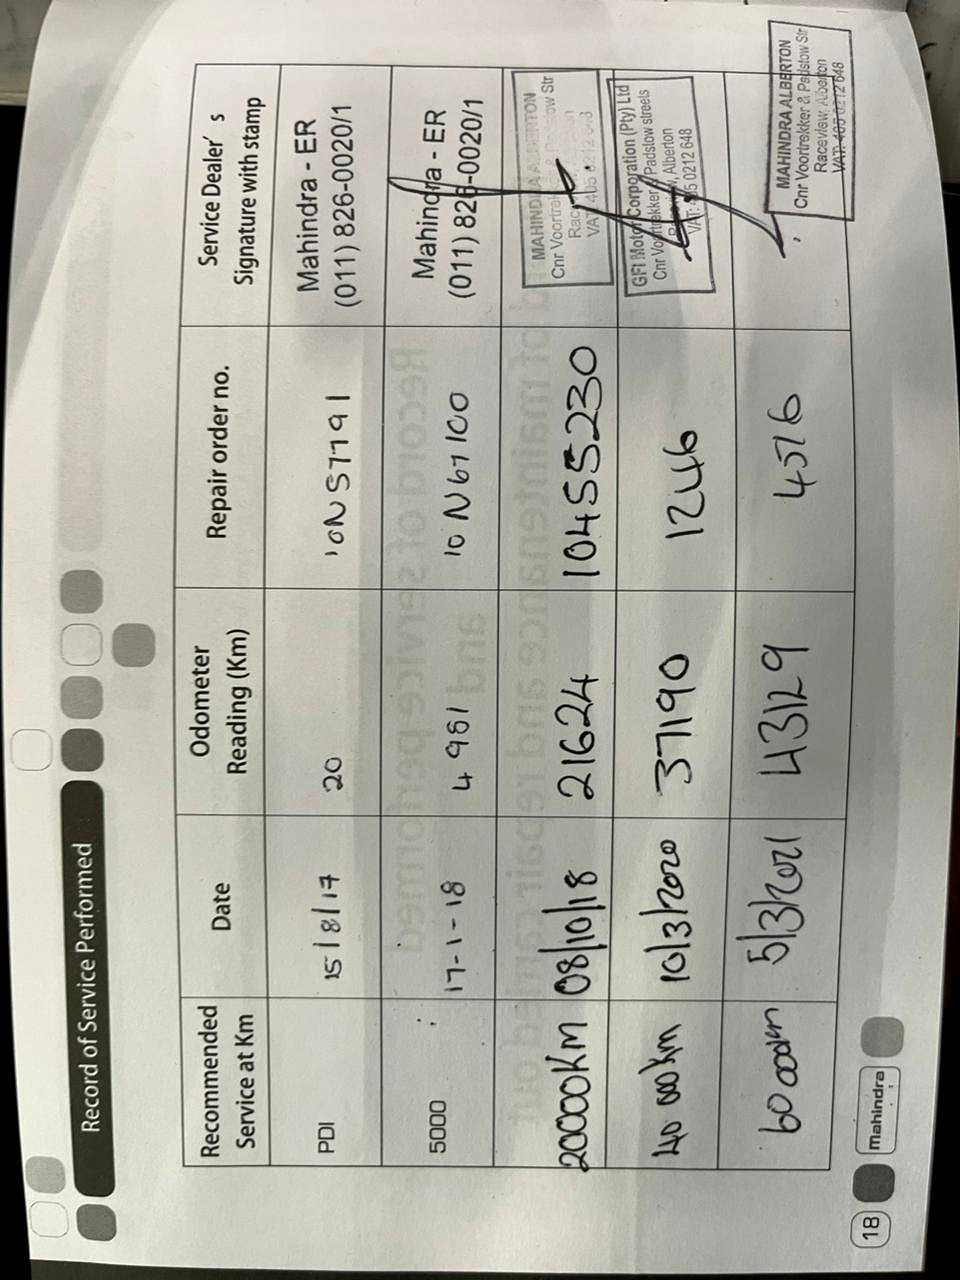 Record of Service Performed
Recommended Service at Km | Date | Odometer Reading (Km) | Repair order no. | Service Dealer's Signature with stamp
PDI | 15/8/17 | 20 | 10N57791 | Mahindra - ER
(011) 826-0020/1
5000 | 17-1-18 | 4 961 | 10N67100 | Mahindra - ER
(011) 826-0020/1
20000Km | 08/10/18 | 21624 | 10455230 | MAHINDRA ALBERTON
Cnr Voortrekker & Padstow Str
VAT: 405 0212 648
40 000Km | 10/3/2020 | 37190 | 1246 | GFI Motor Corporation (Pty) Ltd
Cnr Voortrekker & Padslow streels
Raceview, Alberton
VAT: 405 0212 648
60 000km | 5/3/2021 | 43129 | 4576 | MAHINDRA ALBERTON
Cnr Voortrekker & Padstow Str
Raceview, Alberton
VAT: 405 0212 648
18 mahindra